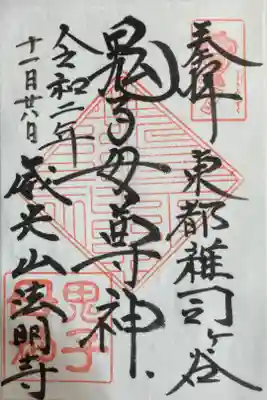 奉拝
東都雑司ヶ谷
鬼子母尊神
令和二年
十一月廿八日
威光山法明寺